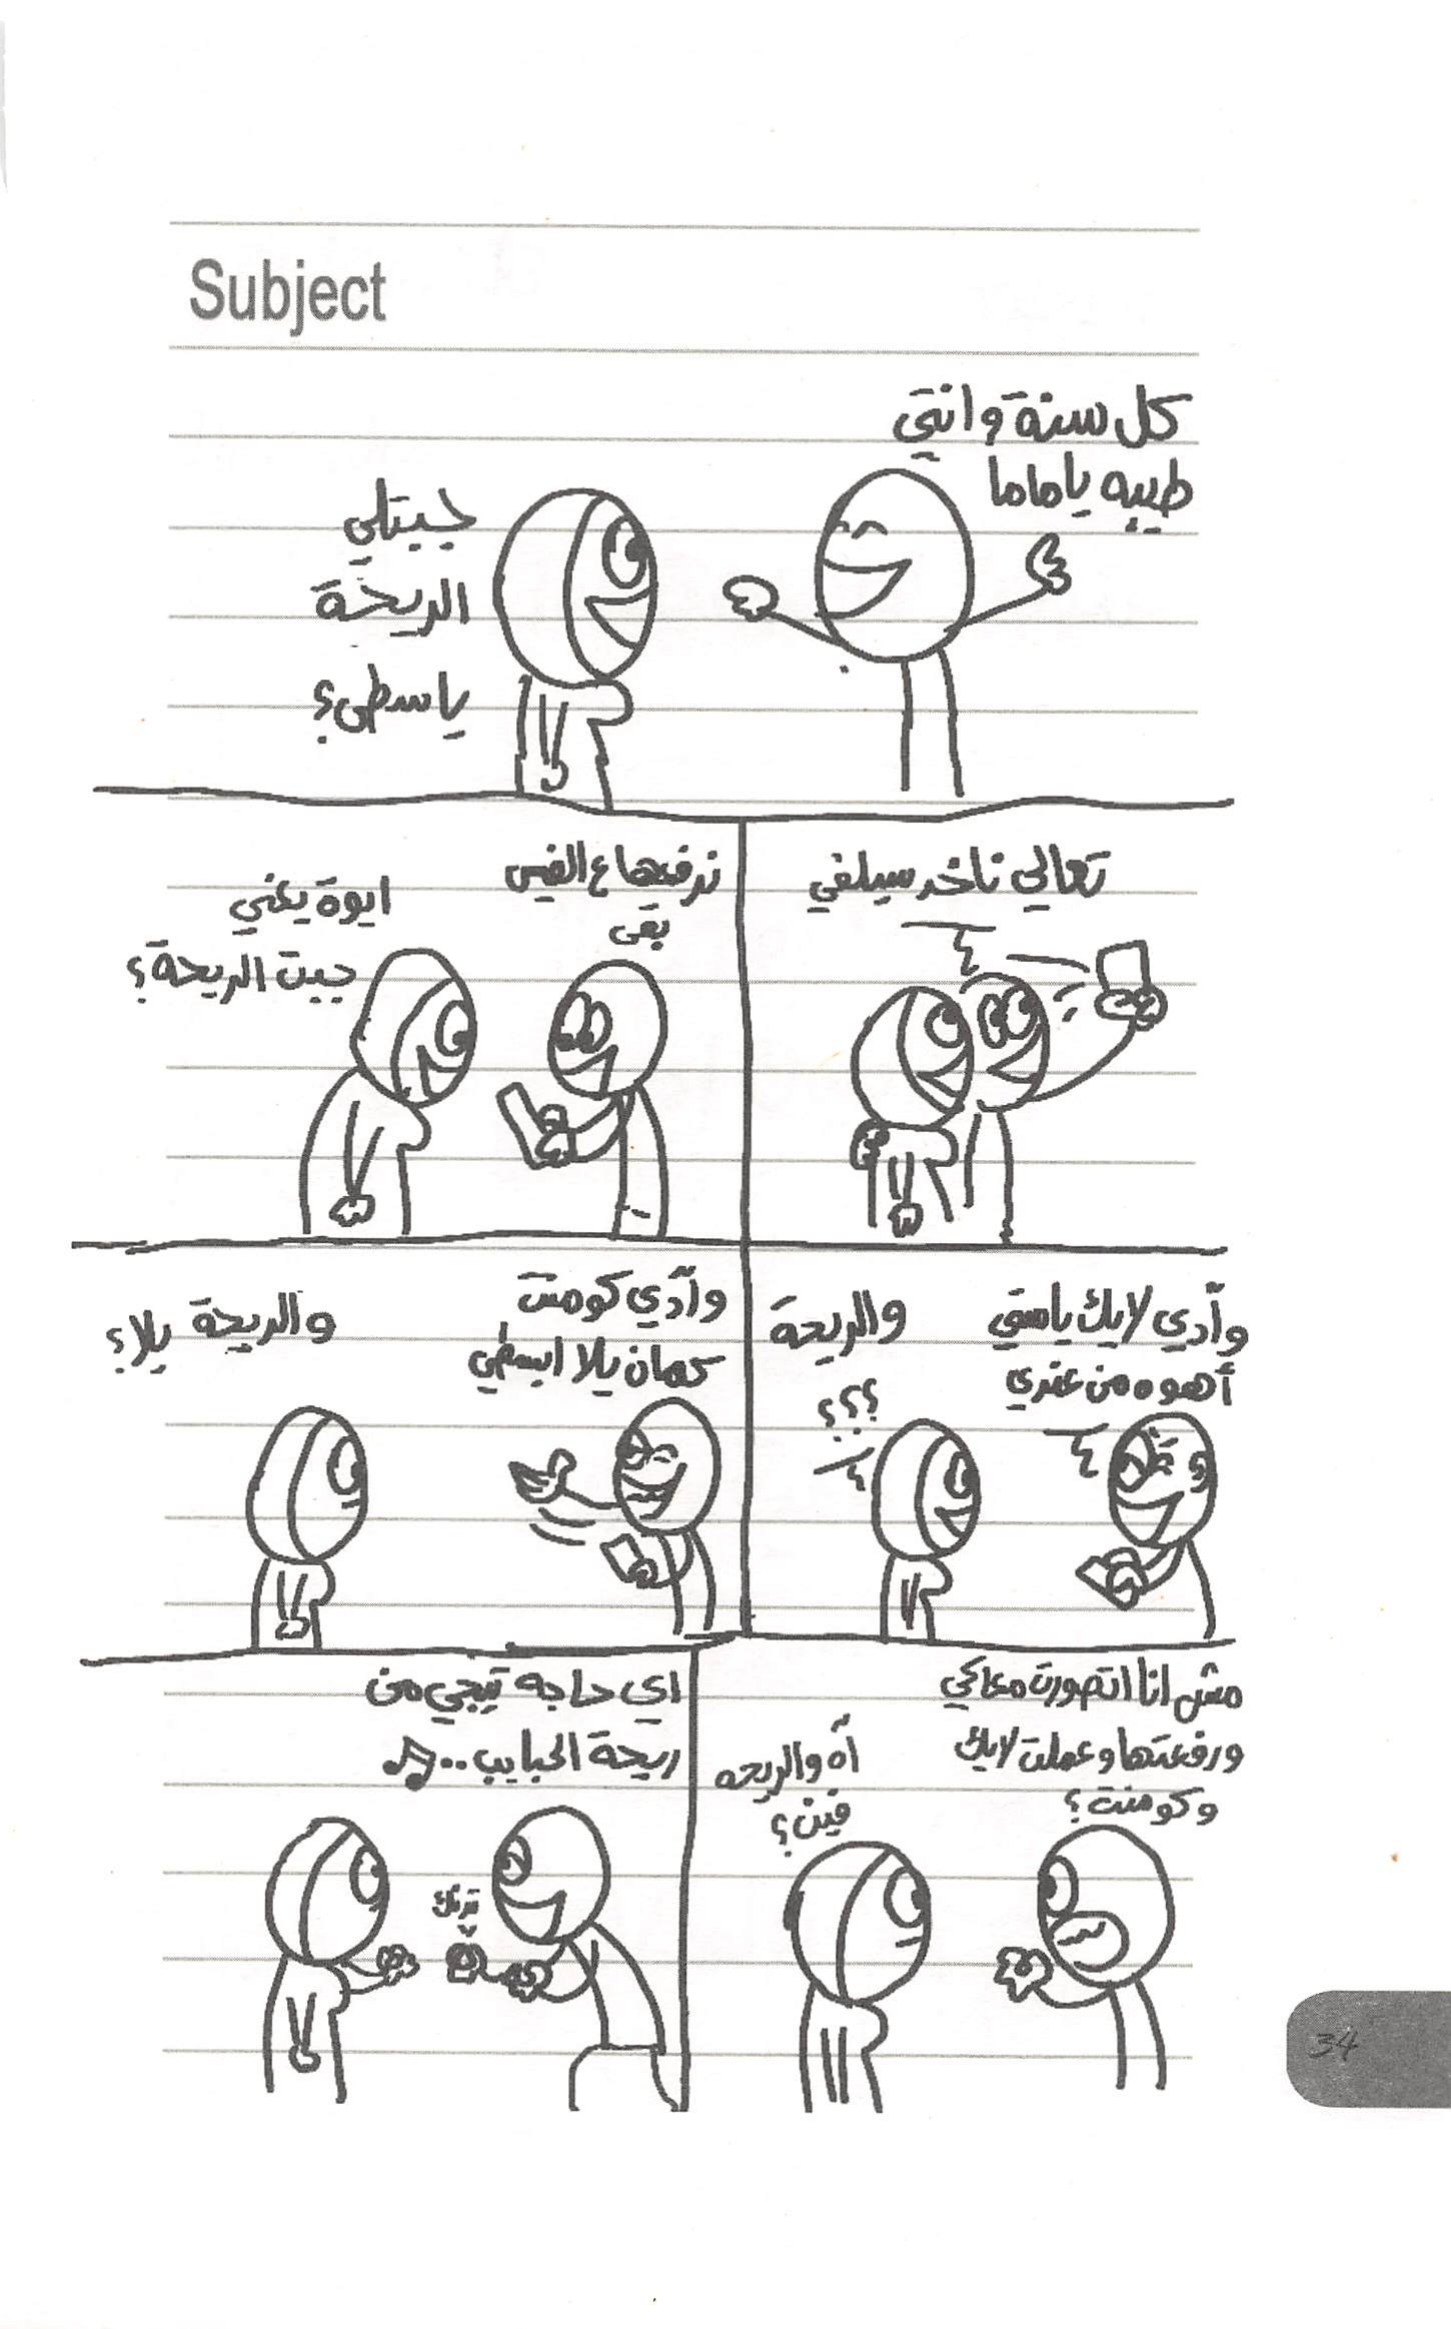 Subject
كل سنة وانتي
طيبه ياماما
جيبتلي
الريحة
ياسطى؟
تعالي ناخد سيلفي
نرفعها ع الفيس
بقى
ايوة يعني
جبت الريحة؟
وآدي لايك ياستي
أهوه من عندي
والريحة
؟؟؟
وآدي كومنت
كمان يلا ابسطي
والريحة يلا؟
مش انا اتصورت معاكي
ورفعتها وعملت لايك
وكومنت؟
آه والريحه
فين؟
اي حاجه تيجي من
ريحة الحبايب..
34